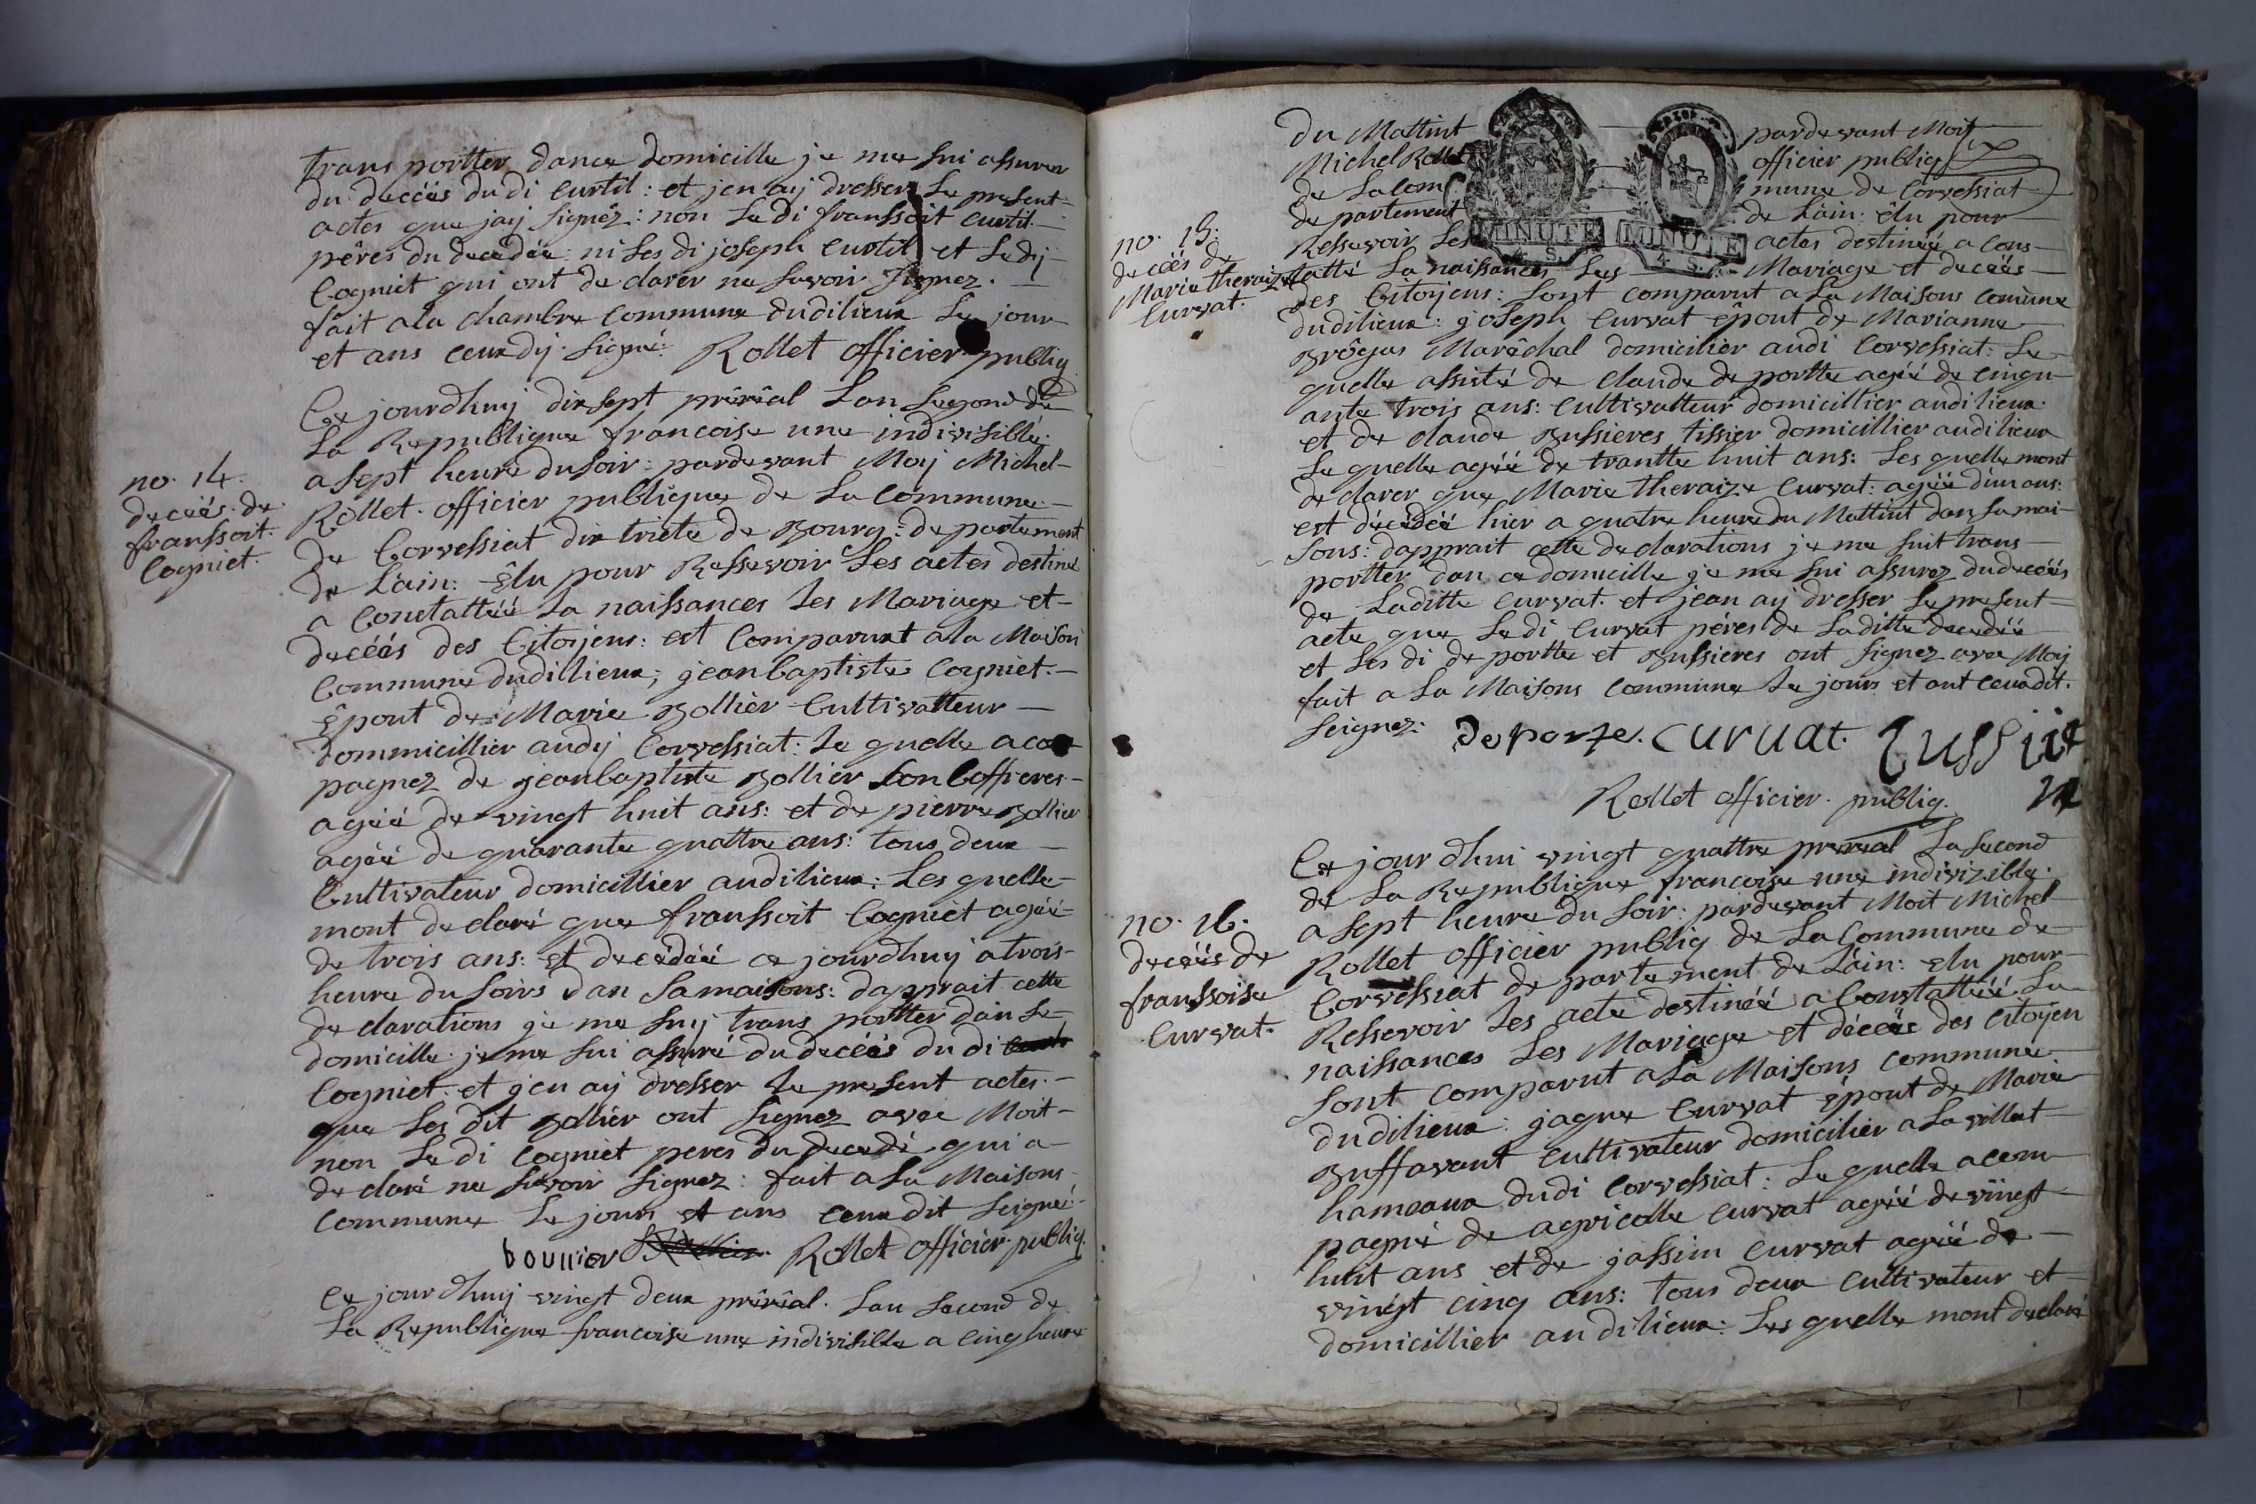 trans portter dance domicille je me sui assurer
du decéés du di curtil : et jen aij dresser Le present
actes que jaij signéz : non Le di franssoit curtil
pêres du decedée : ni Les di joseph curtil et Le dij
Cogniet qui ont de clarer ne savoir signez .
fait a la chambre commune dudilieux Le jour
et ans ceux dij . signé : Rollet officier publiq
Ce jourdhuij dixsept prêrial Lan segond de
La Republique francoise une indivisible
a sept heure du soir : pardevant Moij Michel
no. 14.
deceés de
franssoit
Cogniet.
Rollet . officier publique de La commune
de Corvessiat dix tricte de Bourg : de partement
de Lain : êlu pour Ressevoir Les actes destiné
a Constattéé La naissances Les Mariage et
decéés des Citoijens : est Comparut a la Maison
Commune dudillieux ; jeanbaptiste cogniet .
êpout de Marie Bollier Cultivatteur
dommicillier audij Corvessiat : Le quelle acom
pagnez de jeanbaptiste Bollier son Coffreres
agéé de vingt huit ans : et de pierre Bollier
agéé de quarante quattre ans : tous deux
Cultivateur domicillier audilieux : Les quelle
mont de claré que franssoit Cogniet agéé
de trois ans : et decedéé ce jourdhuij a trois
heure du soirs dan sa maisons : dapprait cette
de clarations je me suij trans portter dan se
domicille je me sui assuré du deceés du di
Cogniet . et jen aij dresser Le present actes .
que Les dit Bolier ont signez avec Moit
non Le di cogniet peres du decedé qui a
de claré ne savoir signez : fait a La Maisons
commune Le jour et ans ceux dit seigné
bouııier Rollet officier publiq .
Ce jourdhuij vingt deux prêrial . Lan second de
La Republique francoise une indivisible a cinq heure
du Mattint pardevant Moit
Michel Rollet officier publiq
de La com mune de Corvessiat
de partement de Lain : êlu pour
Ressevoir Les actes destinéé a Cons
MINUTE MINUTE
4. S. 4. S.
no. 15.
deceés de
Marie theraize
Curvat.
tatté La naissances Les Mariage et deceés
des Citoijens : sont comparut a La Maisons comune
dudilieux : joseph Curvat êpout de Marianne
Brôgus Marêchal domicilier audi Corvessiat : Le
quelle assisté de claude de portte agéé de cinqu
ante trois ans : cultivatteur domicillier audilieux
et de claude Bussieres tissier domicillier audilieux
Le quelle agéé de trantte huit ans : Les quelle mont
de clarer que Marie theraize Curvat : agéé dun ans :
est décedéé hier a quatre heure du Mattint dan sa mai
sons : dapprait cette declarations je me suit trans
portter dan ce domicille je me sui assurez du deceés
de Laditte curvat . et jean aij dresser Le present
acte que Le di Curvat péres de Laditte decedéé
et Les di de portte et Bussieres ont signez avec Moij
fait a La Maisons commune Le jours et ant ceuxdit .
seignez : deporte . curuat .
Rollet officier . publiq .
Ce jourdhui vingt quattre prerial La second
de La Republique francoise une indivizible .
a sept heure du soir : pardevant Moit Michel
no. 16.
deceés de
franssoise
Curvat.
Rollet officier publiq de La Commune de
Corvessiat de partement de Lain : êlu pour
Ressevoir Les acte destinéé a Constattéé La
naissances Les Mariage et décées des citoijen
sont comparut a La Maisons commune
dudilieux : jaque Curvat êpout de Marie
Buffavant cultivateur domicilier a La villat
hameaux dudi corvessiat : Le quelle acom
pagné de agricolle curvat agéé de vingt
huit ans et de jassim curvat agéé de
vingt cinq ans : tous deux cultivateur et
domicillier audilieux : Les quelle mont declaré